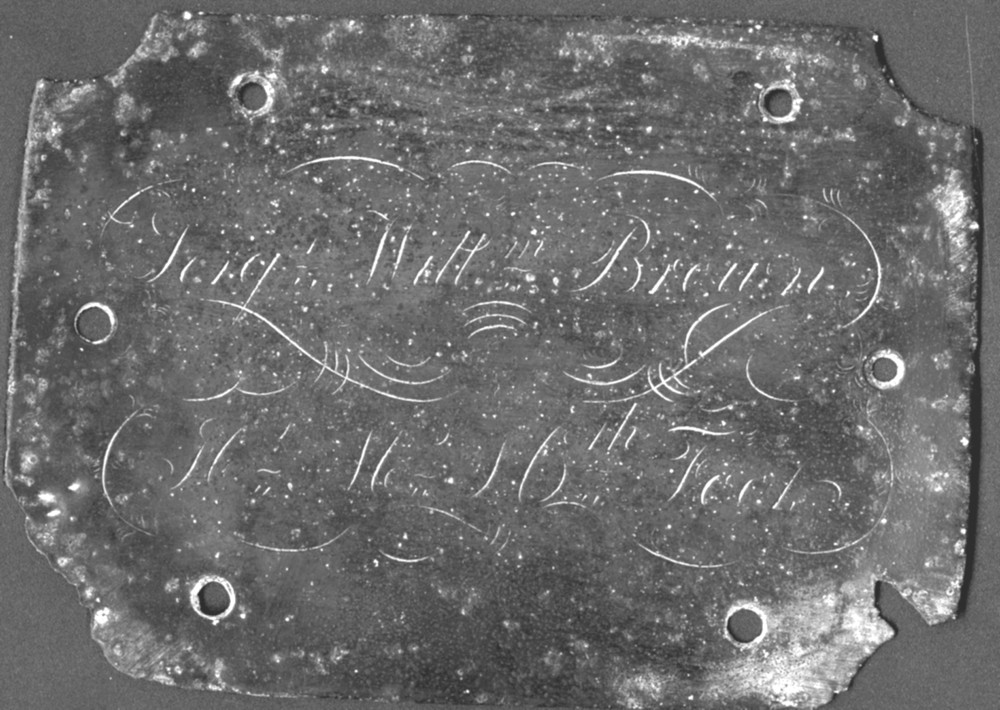 Serg.t Will.m Brown
H. M. 16th Foot